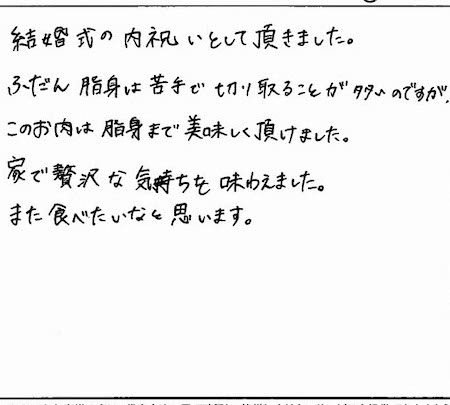 結婚式の内祝いとして頂きました。
ふだん脂身は苦手で切り取ることが多いのですが、
このお肉は脂身まで美味しく頂けました。
家で贅沢な気持ちを味わえました。
また食べたいなと思います。